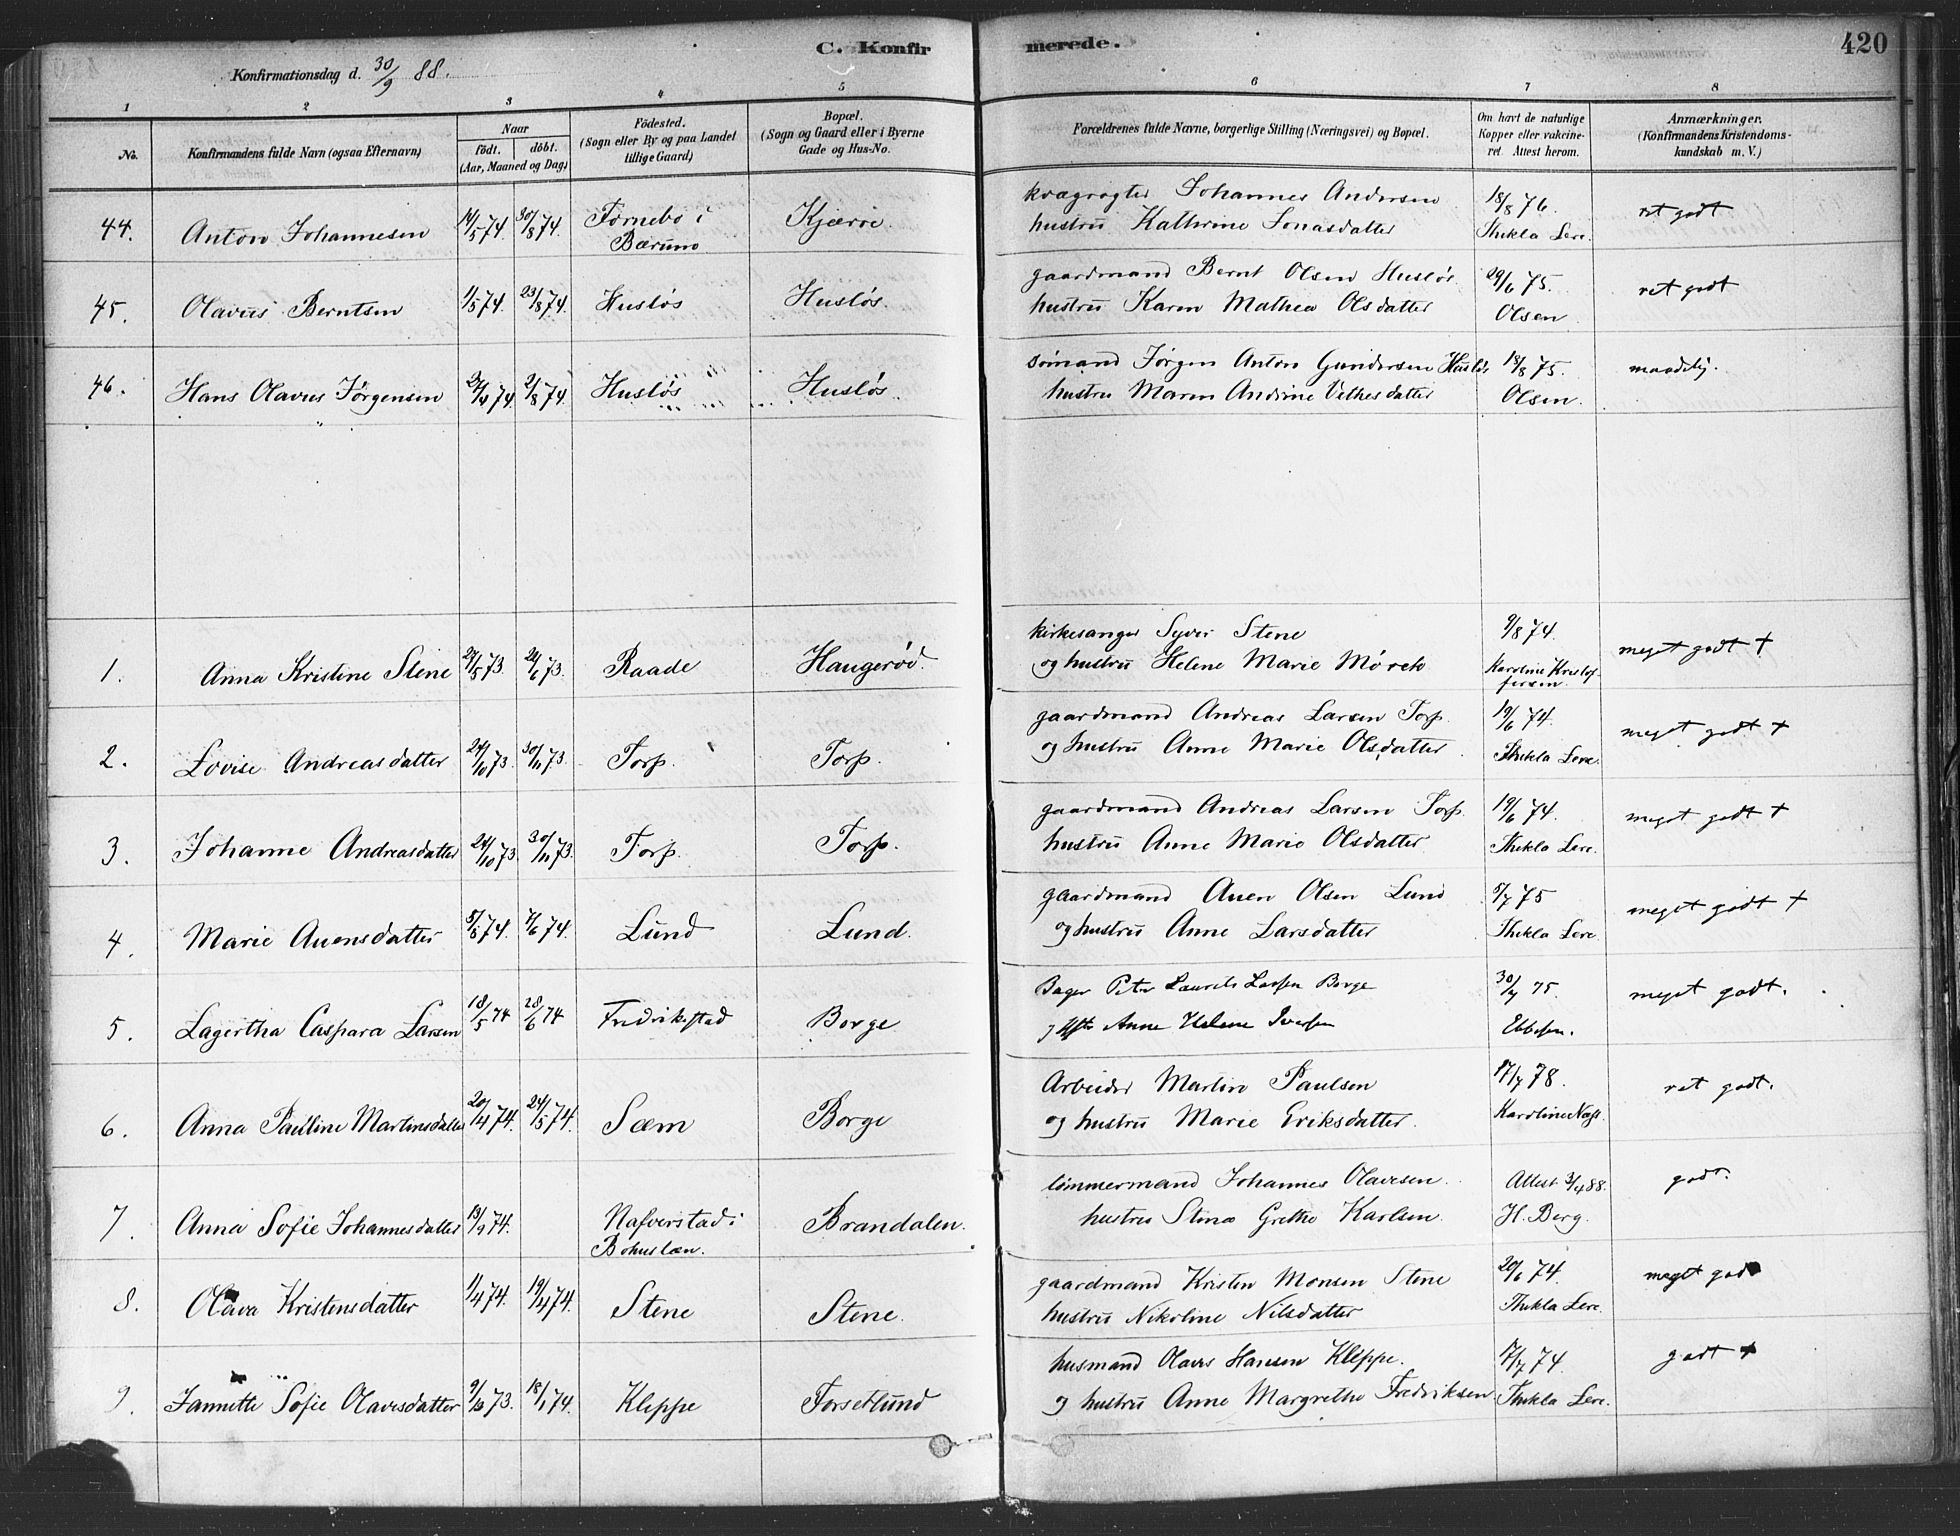 C. Konfirmerede.
420
Konfirmationsdag d. 30/9 88.
1 2 3 4 5 6 7 8
No.
Konfirmandens fulde Navn (ogsaa Efternavn)
Naar
födt. döbt.
(Aar, Maaned og Dag)
Födested.
(Sogn eller By og paa Landet
tillige Gaard)
Bopæl.
(Sogn og Gaard eller i Byerne
Gade og Hus-No.
Forældrenes fulde Navne, borgerlige Stilling (Næringsvei) og Bopæl.
Om havt de naturlige
Kopper eller vakcine-
ret. Attest herom.
Anmærkninger.
(Konfirmandens Kristendoms-
kundskab m. V.)
44. Anton Johannesen 14/5 74. 30/8 74. Fornebo i Bærum Kjærre.
kvægrøgter Johannes Andersen 18/8 76. ret godt
hustru Kathrine Jonasdatter Thekla Lere.
45. Olavus Berntsen 1/5 74. 23/8 74. Husløs Husløs.
gaardmand Bernt Olsen Husløs 29/6 75. ret godt
hustru Karen Mathea Olsdatter Olsen
46. Hans Olavus Jørgensen 27/4 74. 2/8 74. Husløs Husløs
sömand Jørgen Anton Gundersen Husløs 18/8 75. maadelig.
hustru Maren Andrine Vethesdatter Olsen.
1. Anna Kristine Stene 27/5 73. 24/6 73. Raade Haugerød
kirkesanger Syver Stene 9/8 74. meget godt +
og hustru Helene Marie Mørch Karoline Kristoffersen
2. Lovise Andreasdatter 24/10 73. 30/11 73. Torp. Torp.
gaardmand Andreas Larsen Torp. 19/6 74. meget godt +
og hustru Anne Marie Olsdatter Thekla Lere.
3. Johanne Andreasdatter 24/10 73. 30/11 73. Torp. Torp.
gaardmand Andreas Larsen Torp. 19/6 74. meget godt +
hustru Anne Marie Olsdatter Thekla Lere.
4. Marie Auensdatter 5/5 74. 7/6 74. Lund Lund.
gaardmand Auen Olsen Lund 5/7 75 meget godt +
og hustru Anne Larsdatter Thekla Lere
5. Lagertha Caspara Larsen 18/5 74 28/6 74 Fredrikstad Borge
Bager Peter Laurits Larsen Borge 30/7 75. meget godt.
Anne Helene Iversen Ebbesen.
6. Anna Pauline Martinsdatter 20/4 74. 24/5 74. Sæm Borge
Arbeider Martin Paulsen 17/7 78. ret godt.
og hustru Marie Eriksdatter. Karoline Næss.
7. Anna Sofie Johannesdatter 13/2 74. Nafverstad i Bohuslæn. Brandalen.
tömmermand Johannes Olavesen Attest 3/4 88. godt.
hustru Stina Grethe Karlsen. H. Berg.
8. Olava Kristensdatter 1/4 74. 19/4 74. Stene Stene.
gaardmand Kristen Monsen Stene 20/6 74. meget godt
hustru Nikoline Nilsdatter Thekla Lere.
9. Jannette Sofie Olavesdatter 9/12 73. 18/1 74. Kleppe Torsetlund
husmand Olaves Hansen Kleppe. 17/7 74 godt +
og hustru Anne Margrethe Fredriksen Thekla Lere.